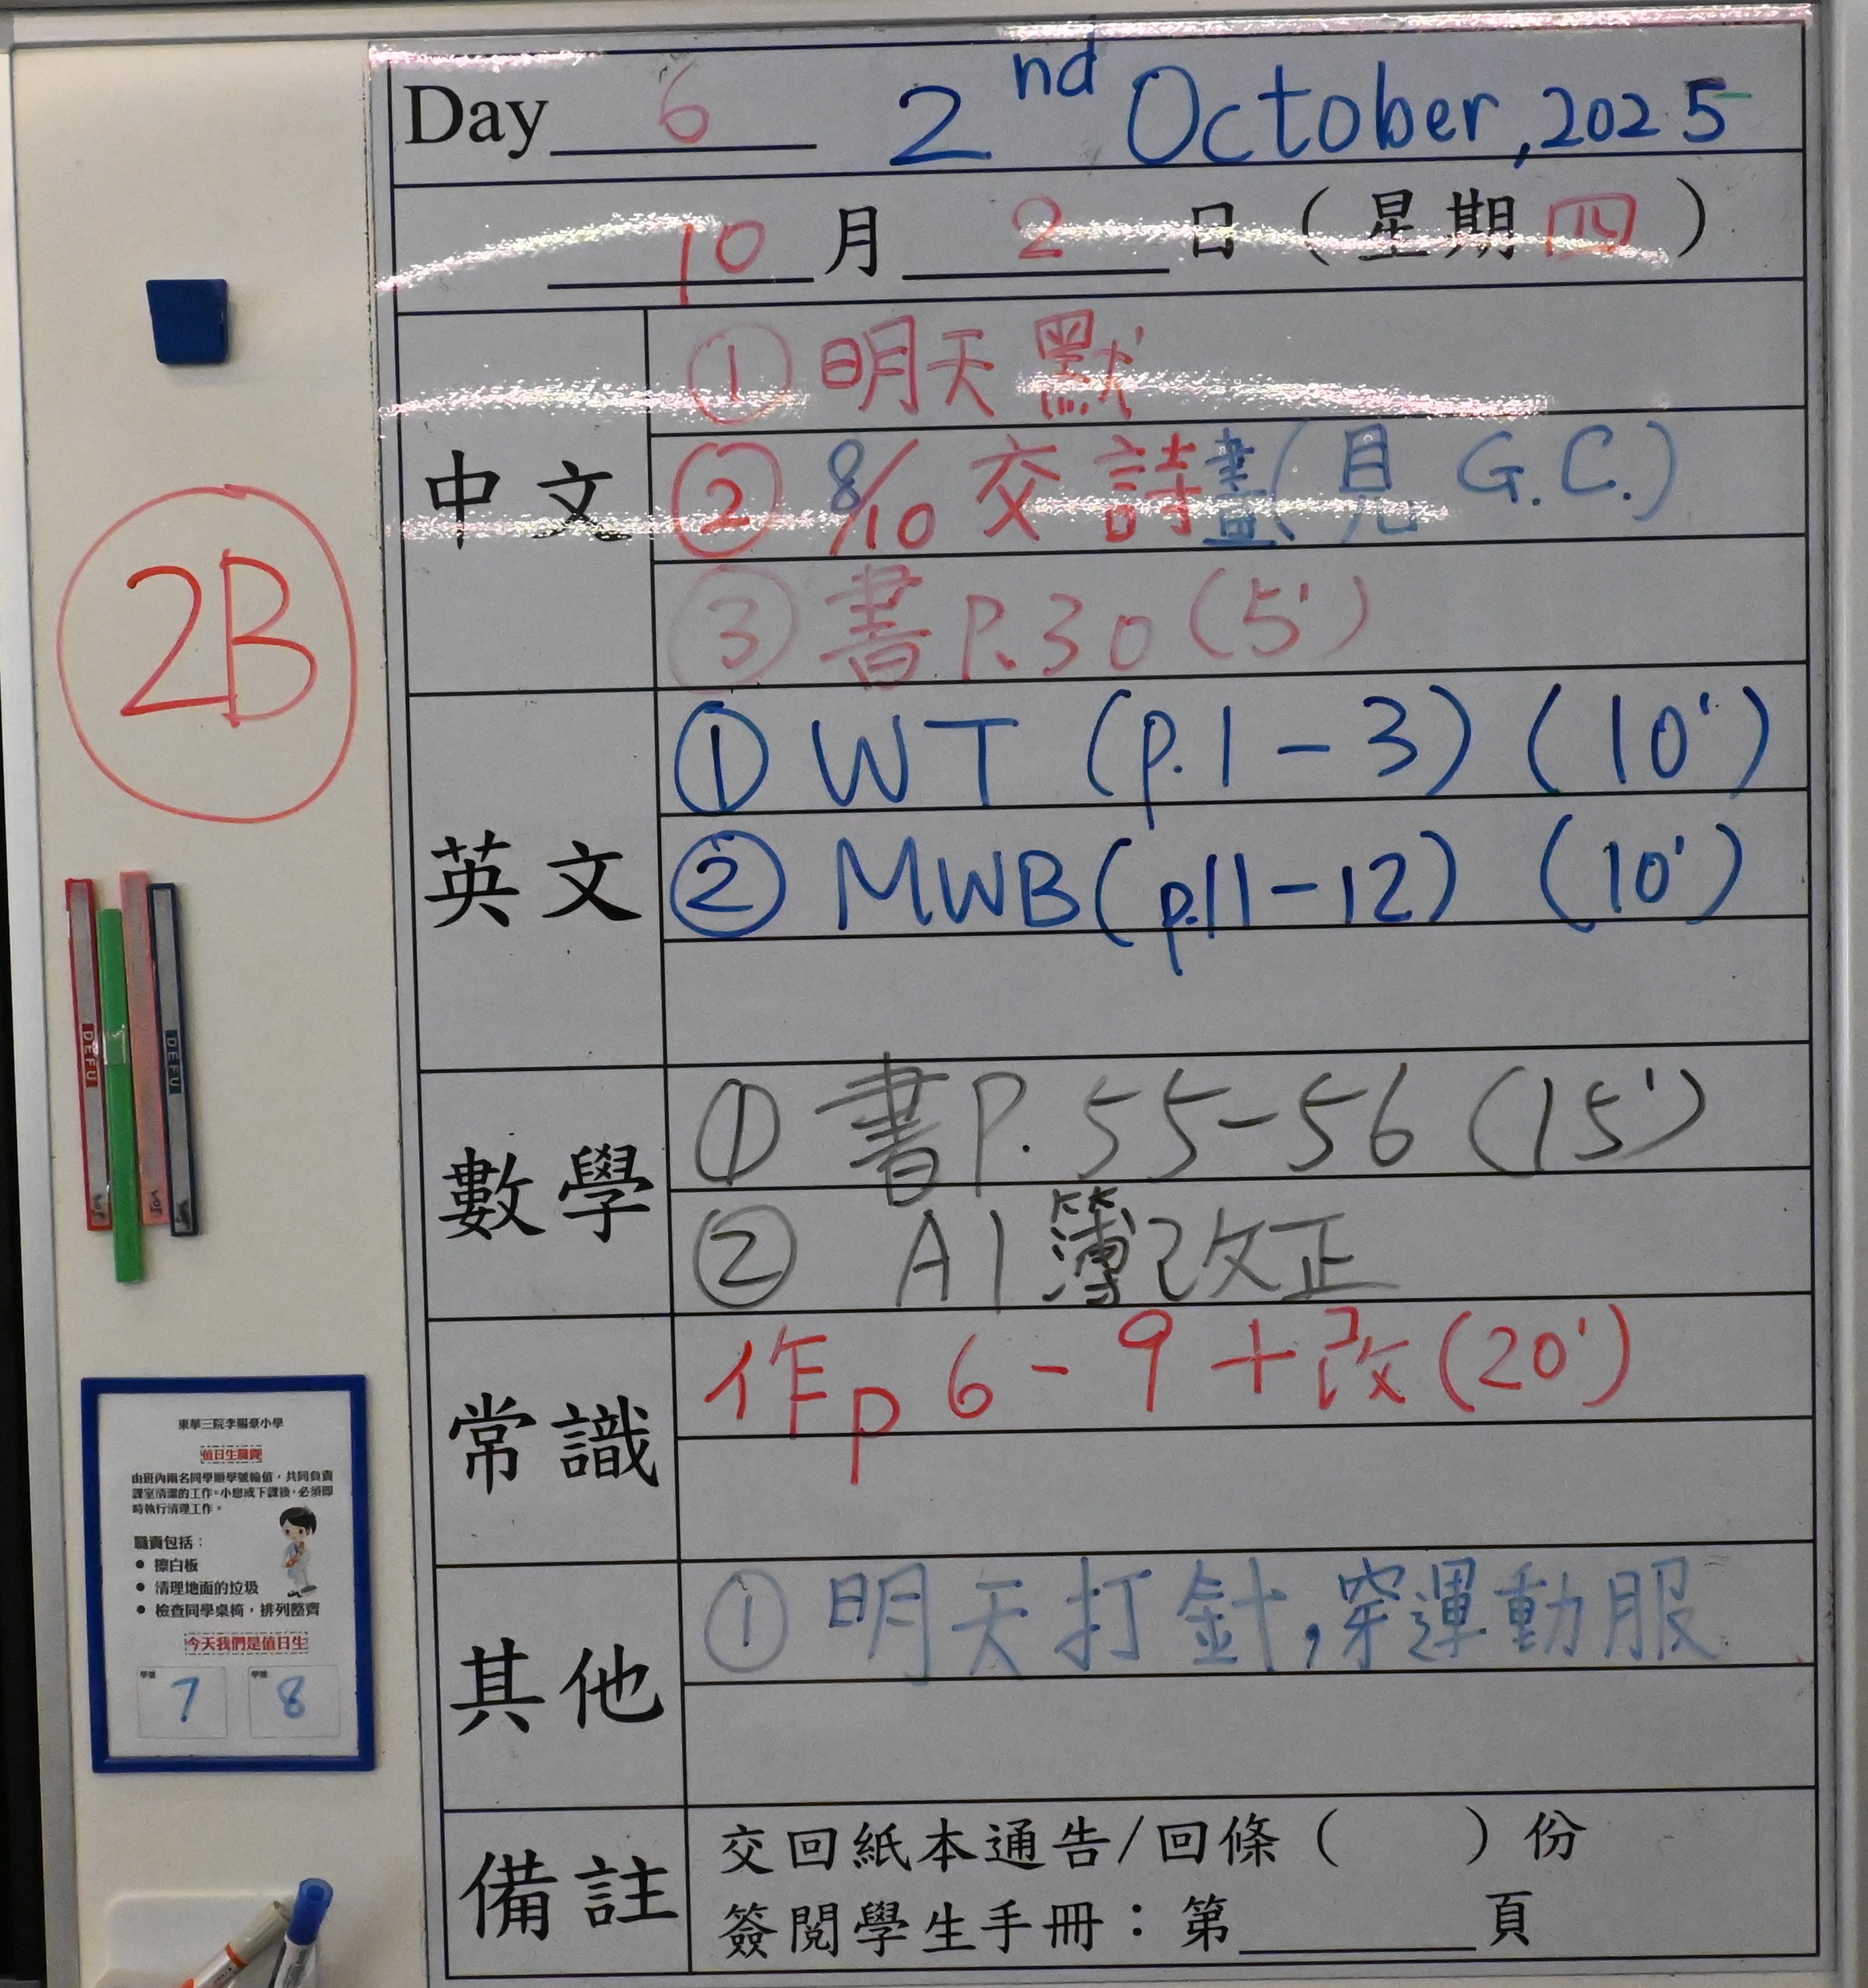 Day 6 2nd October, 2025
10月2日（星期四）
中文
① 明天默
② 8/10 交詩畫(見 G.C.)
③ 書P.30 (5')
英文
① WT (p.1-3) (10')
② MWB (p.11-12) (10')
數學
① 書P.55-56 (15')
② A1簿改正
常識
作p6-9+改(20')
其他
① 明天打針,穿運動服
備註
交回紙本通告/回條（ ）份
簽閱學生手冊：第______頁
2B
DEFU
DEFU
東華三院李賜豪小學
值日生職責
由班內兩名同學順學號輪值，共同負責
課室清潔的工作。小息或下課後，必須即
時執行清理工作。
職責包括：
● 擦白板
● 清理地面的垃圾
● 檢查同學桌椅，排列整齊
今天我們是值日生
學號 學號
7 8